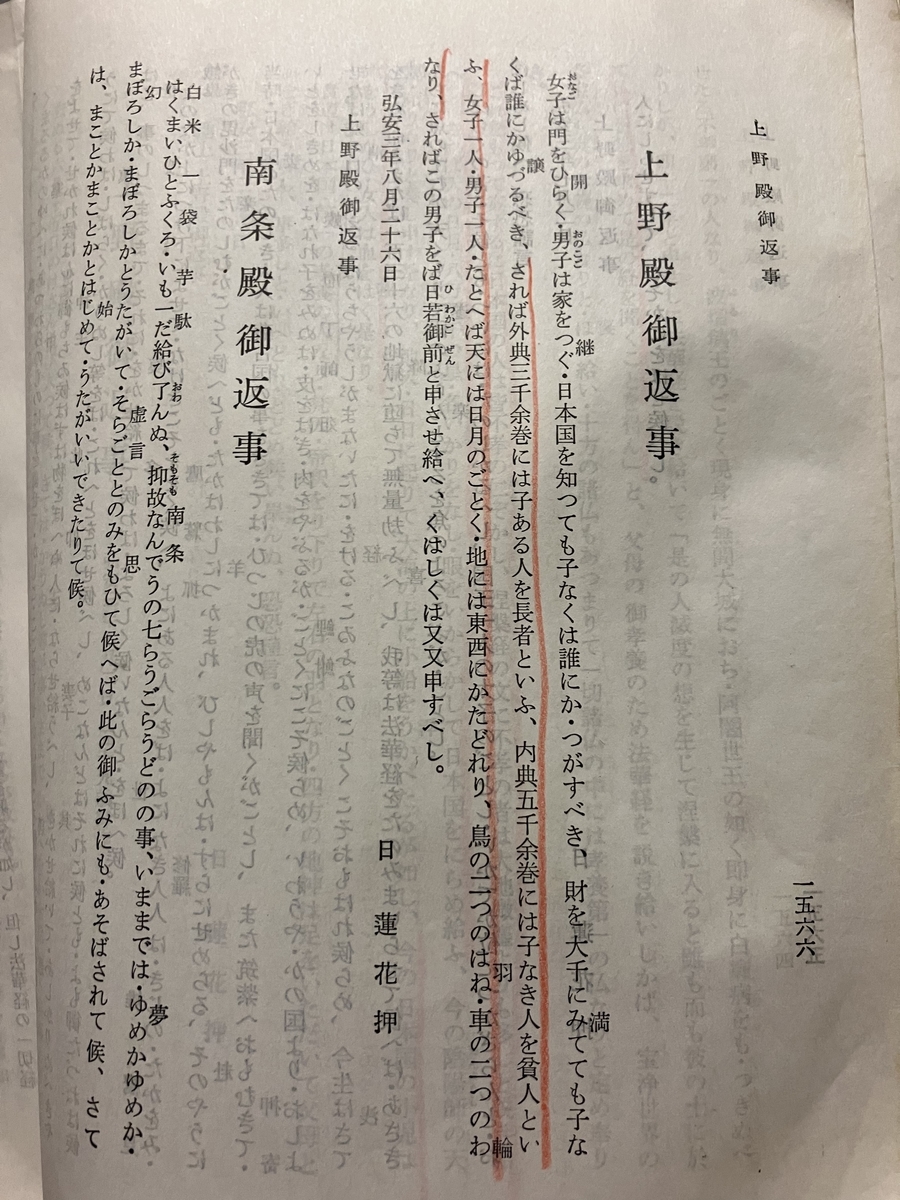 上野殿御返事
一五六六
上野殿御返事
女子は門をひらく・男子は家をつぐ・日本国を知つても子なくは誰にか・つがすべき、財を大千にみてても子な
くば誰にかゆづるべき、されば外典三千余巻には子ある人を長者といふ、内典五千余巻には子なき人を貧人とい
ふ、女子一人・男子一人・たとへば天には日月のごとく・地には東西にかたどれり、鳥の二つのはね・車の二つのわ
なり、さればこの男子をば日若御前と申させ給へ、くはしくは又又申すべし。
弘安三年八月二十六日
日蓮花押
上野殿御返事
南条殿御返事
はくまいひとふくろ・いも一だ給び了んぬ、抑故なんでうの七らうごらうどのの事、いままでは・ゆめかゆめか・
まぼろしか・まぼろしかとうたがいて・そらごととのみをもひて候へば・此の御ふみにも・あそばされて候、さて
は、まことかまことかとはじめて・うたがいいできたりて候。